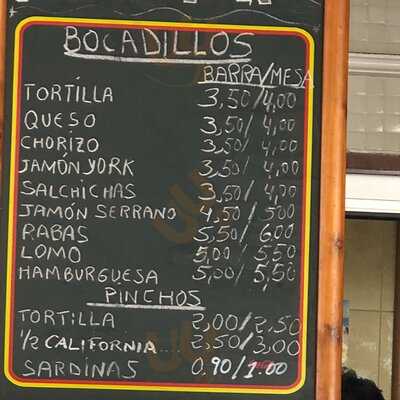 BOCADILLOS
BARRA/MESA
TORTILLA 3,50/4,00
QUESO 3,50/4,00
CHORIZO 3,50/4,00
JAMÓN YORK 3,50/4,00
SALCHICHAS 3,50/4,00
JAMÓN SERRANO 4,50/500
RABAS 5,50/600
LOMO 5,00/5,50
HAMBURGUESA 5,00/5,50
PINCHOS
TORTILLA 2,00/2,50
1/2 CALIFORNIA... 2,50/3,00
SARDINAS 0.90/1.00